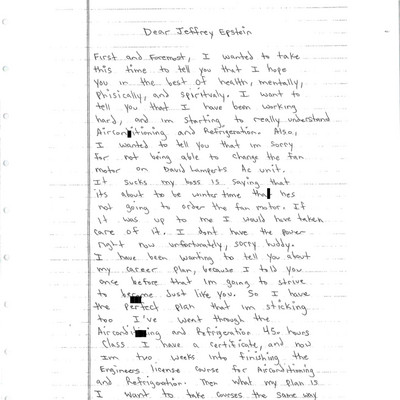 Dear Jeffrey Epstein
First and Foremost, I wanted to take
this time to tell you that I hope
you in the best of health, mentally,
Phisically, and spiritualy. I want to
tell you that I have been working
hard, and im starting to really understand
Airconditioning and Refrigeration. Also,
I wanted to tell you that im sorry
for not being able to change the fan
motor on David Lamperts Ac unit.
It sucks my boss is saying that
its about to be winter time that hes
not going to order the fan motor. If
it was up to me I would have taken
care of it. I dont have the power
right now unfortunately, sorry buddy.
I have been wanting to tell you about
my career plan, because I told you
once before that Im going to strive
to become Just like you. So I have
the perfect plan that im sticking
too I've went through the
Airconditioning and Refrigeration 450 hours
Class I have a certificate, and now
Im two weeks into finishing the
Engineers license course for Airconditioning
and Refrigeration. Then what my plan is
I want to take courses the same way